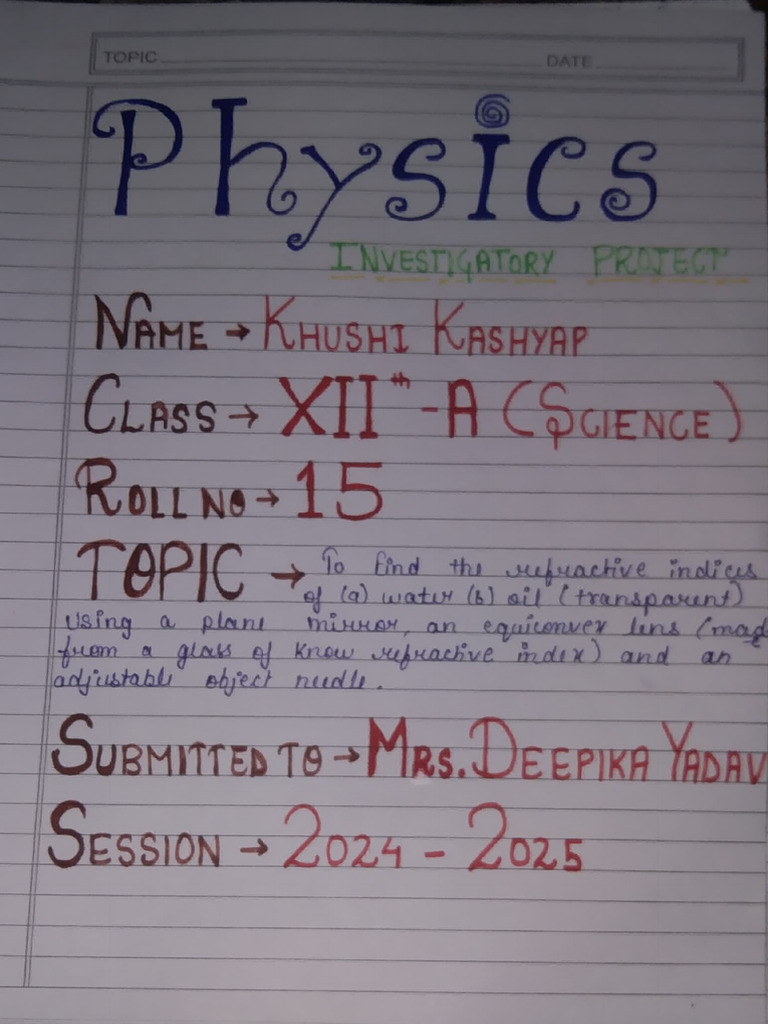 TOPIC DATE
Physics
INVESTIGATORY PROJECT
NAME → KHUSHI KASHYAP
CLASS → XII th - A (SCIENCE)
ROLL NO → 15
TOPIC → To find the refractive indices
of (a) water (b) oil (transparent)
using a plane mirror, an equiconvex lens (made
from a glass of know refractive index) and an
adjustable object needle.
SUBMITTED TO → MRS. DEEPIKA YADAV
SESSION → 2024 - 2025